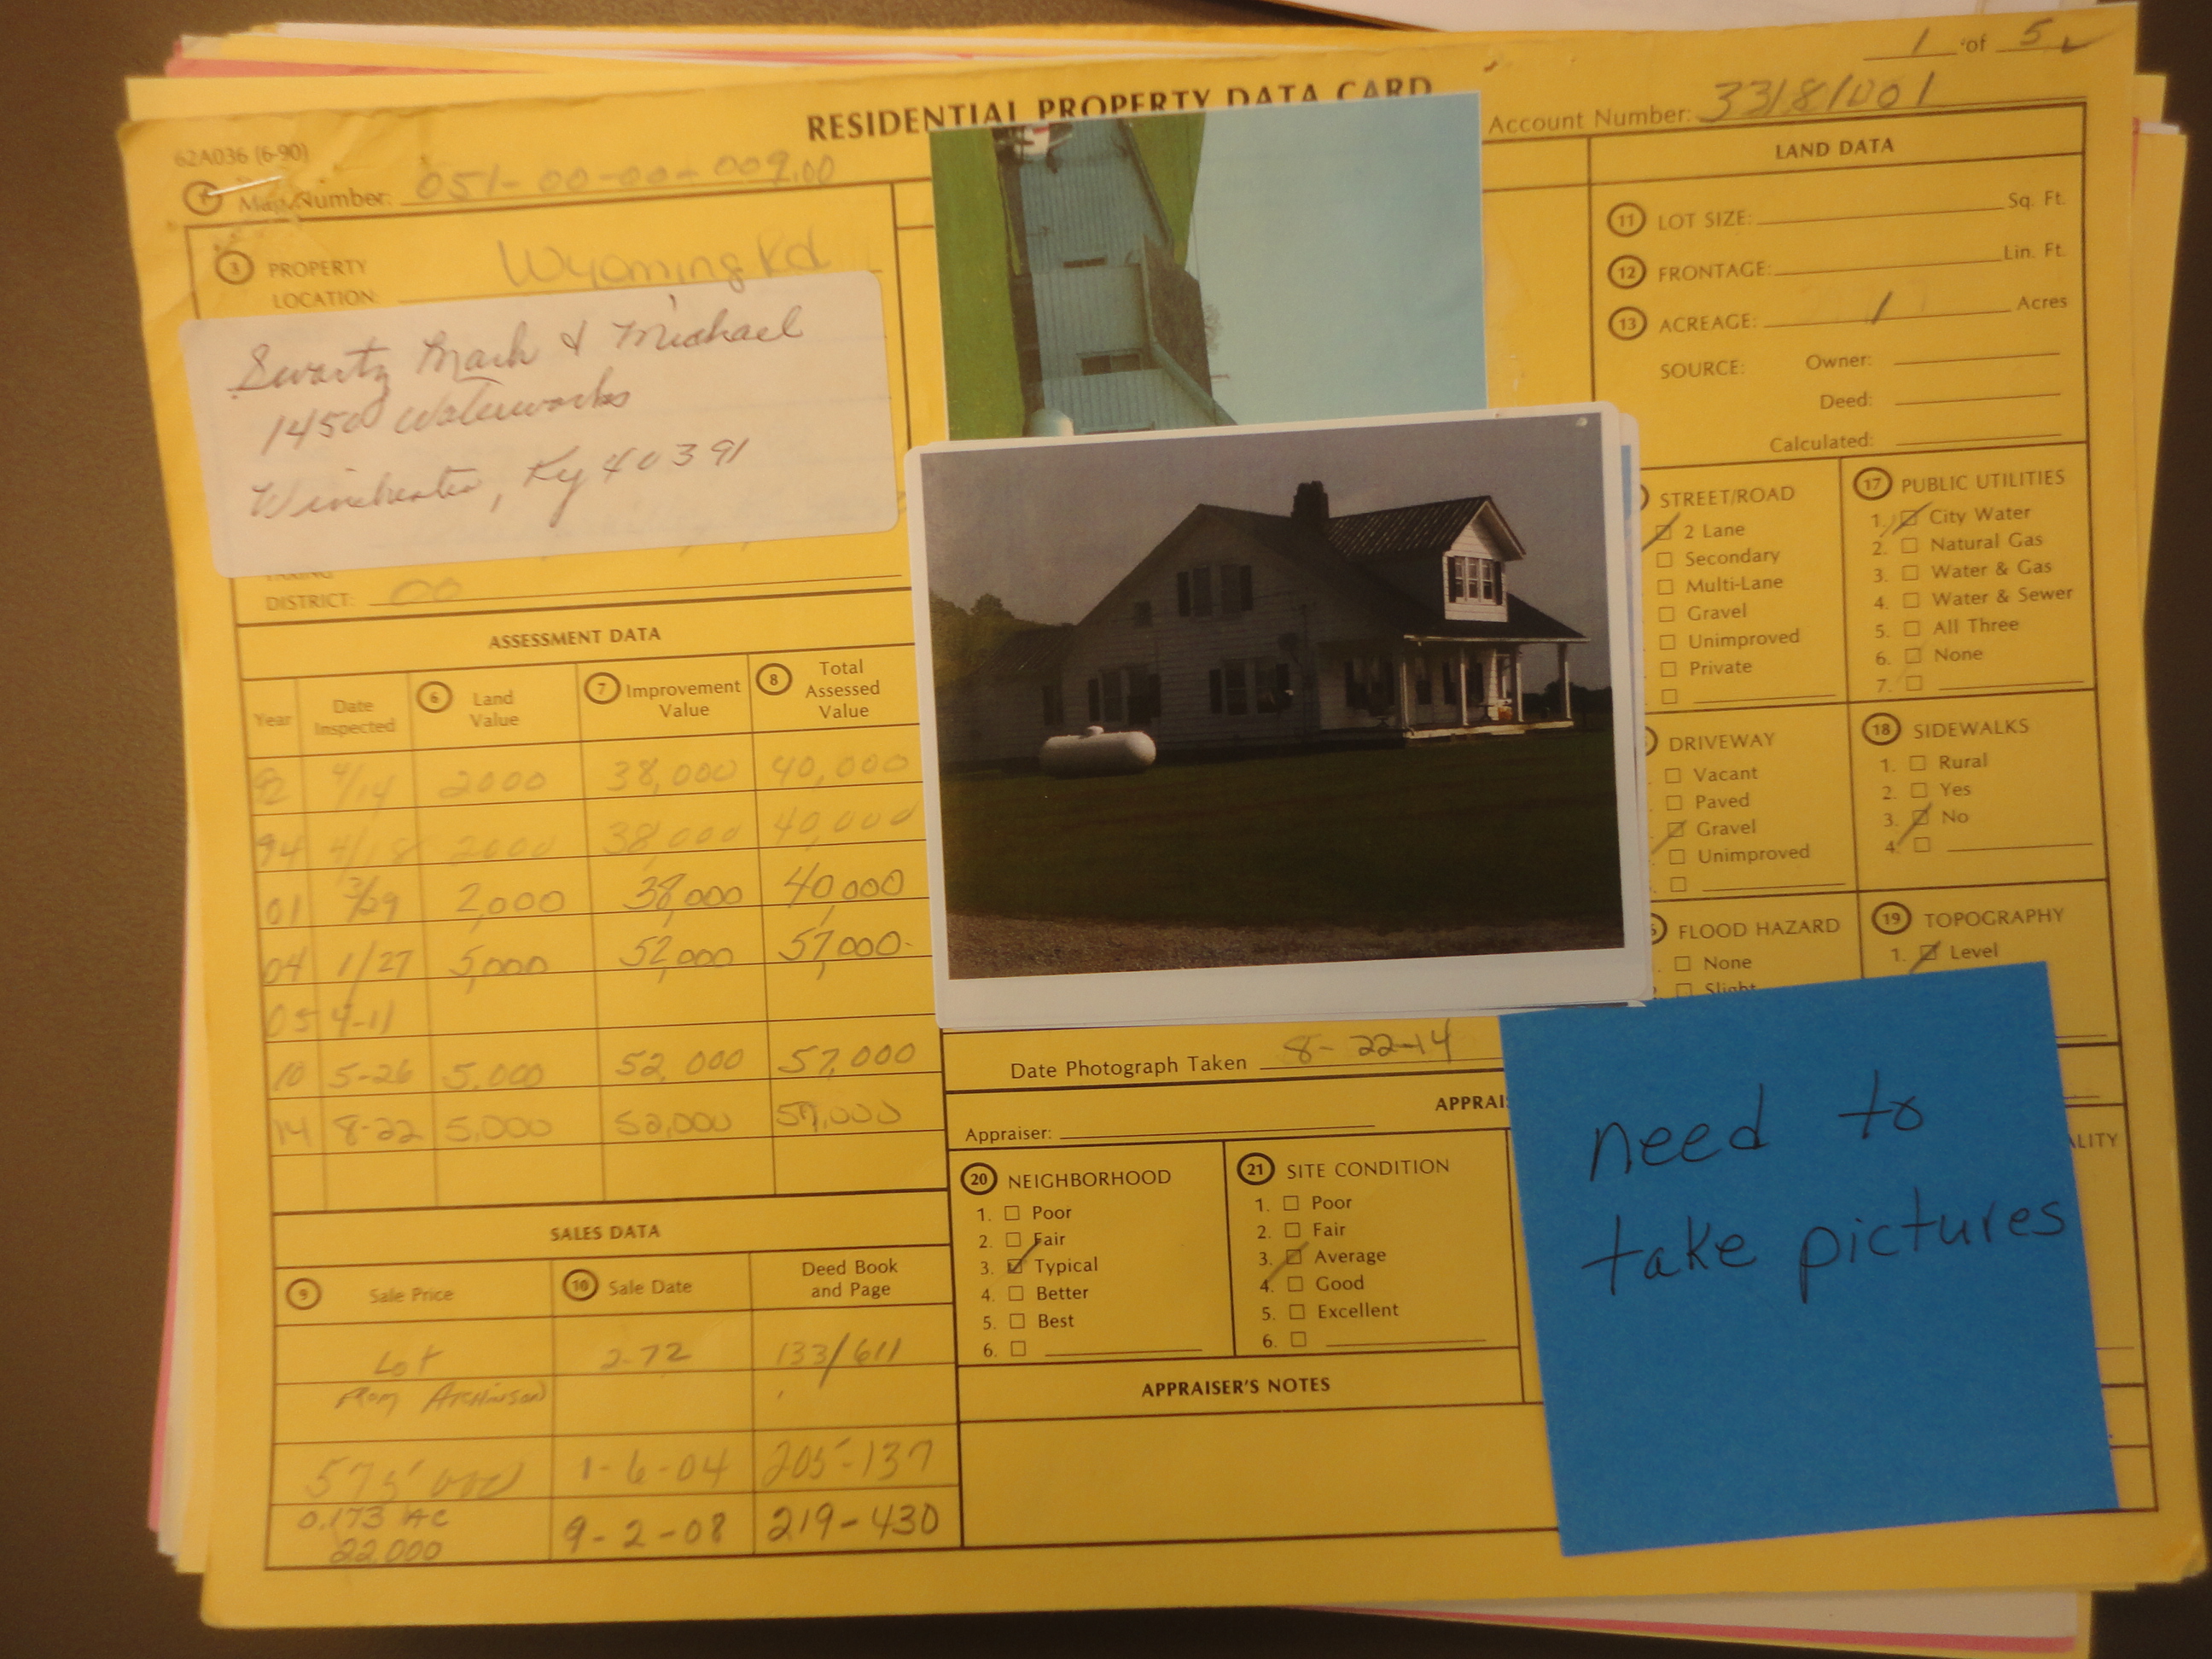 1 of 5
RESIDENTIAL PROPERTY DATA CARD
Account Number: 33181001
62A036 (6-90)
1 Map Number: 051-00-00-009.00
3 PROPERTY LOCATION: Wyoming Rd
Swartz Mark & Michael
1450 Waterworks
Winchester, Ky 40391
DISTRICT: 00
ASSESSMENT DATA
Year Date Inspected 6 Land Value 7 Improvement Value 8 Total Assessed Value
92 4/14 2000 38,000 40,000
94 4/18 2000 38,000 40,000
01 3/29 2,000 38,000 40,000
04 1/27 5,000 52,000 57,000
05 4-11
10 5-26 5,000 52,000 57,000
14 8-22 5,000 52,000 57,000
SALES DATA
9 Sale Price 10 Sale Date Deed Book and Page
Lot 2-72 133/611
From
1-6-04 205-137
0.173 AC
22,000 9-2-08 219-430
LAND DATA
11 LOT SIZE: Sq. Ft.
12 FRONTAGE: Lin. Ft.
13 ACREAGE: 1 Acres
SOURCE: Owner:
Deed:
Calculated:
STREET/ROAD
2 Lane
Secondary
Multi-Lane
Gravel
Unimproved
Private
17 PUBLIC UTILITIES
1. City Water
2. Natural Gas
3. Water & Gas
4. Water & Sewer
5. All Three
6. None
7.
DRIVEWAY
Vacant
Paved
Gravel
Unimproved
18 SIDEWALKS
1. Rural
2. Yes
3. No
4.
FLOOD HAZARD
None
Slight
19 TOPOGRAPHY
1. Level
Date Photograph Taken 8-22-14
APPRAI
Appraiser:
20 NEIGHBORHOOD
1. Poor
2. Fair
3. Typical
4. Better
5. Best
6.
21 SITE CONDITION
1. Poor
2. Fair
3. Average
4. Good
5. Excellent
6.
APPRAISER'S NOTES
ALITY
need to
take pictures